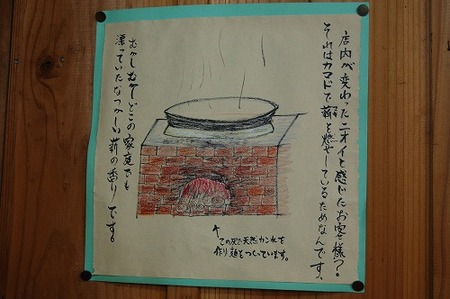 店内が変わったニオイと感じたお客様へ!
それはカマドで薪を燃やしているためなんです。
むかしむかしどこの家庭でも
漂っていたなつかしい薪の香りです。
この灰で天然カン水を
作り麺をつくっています。